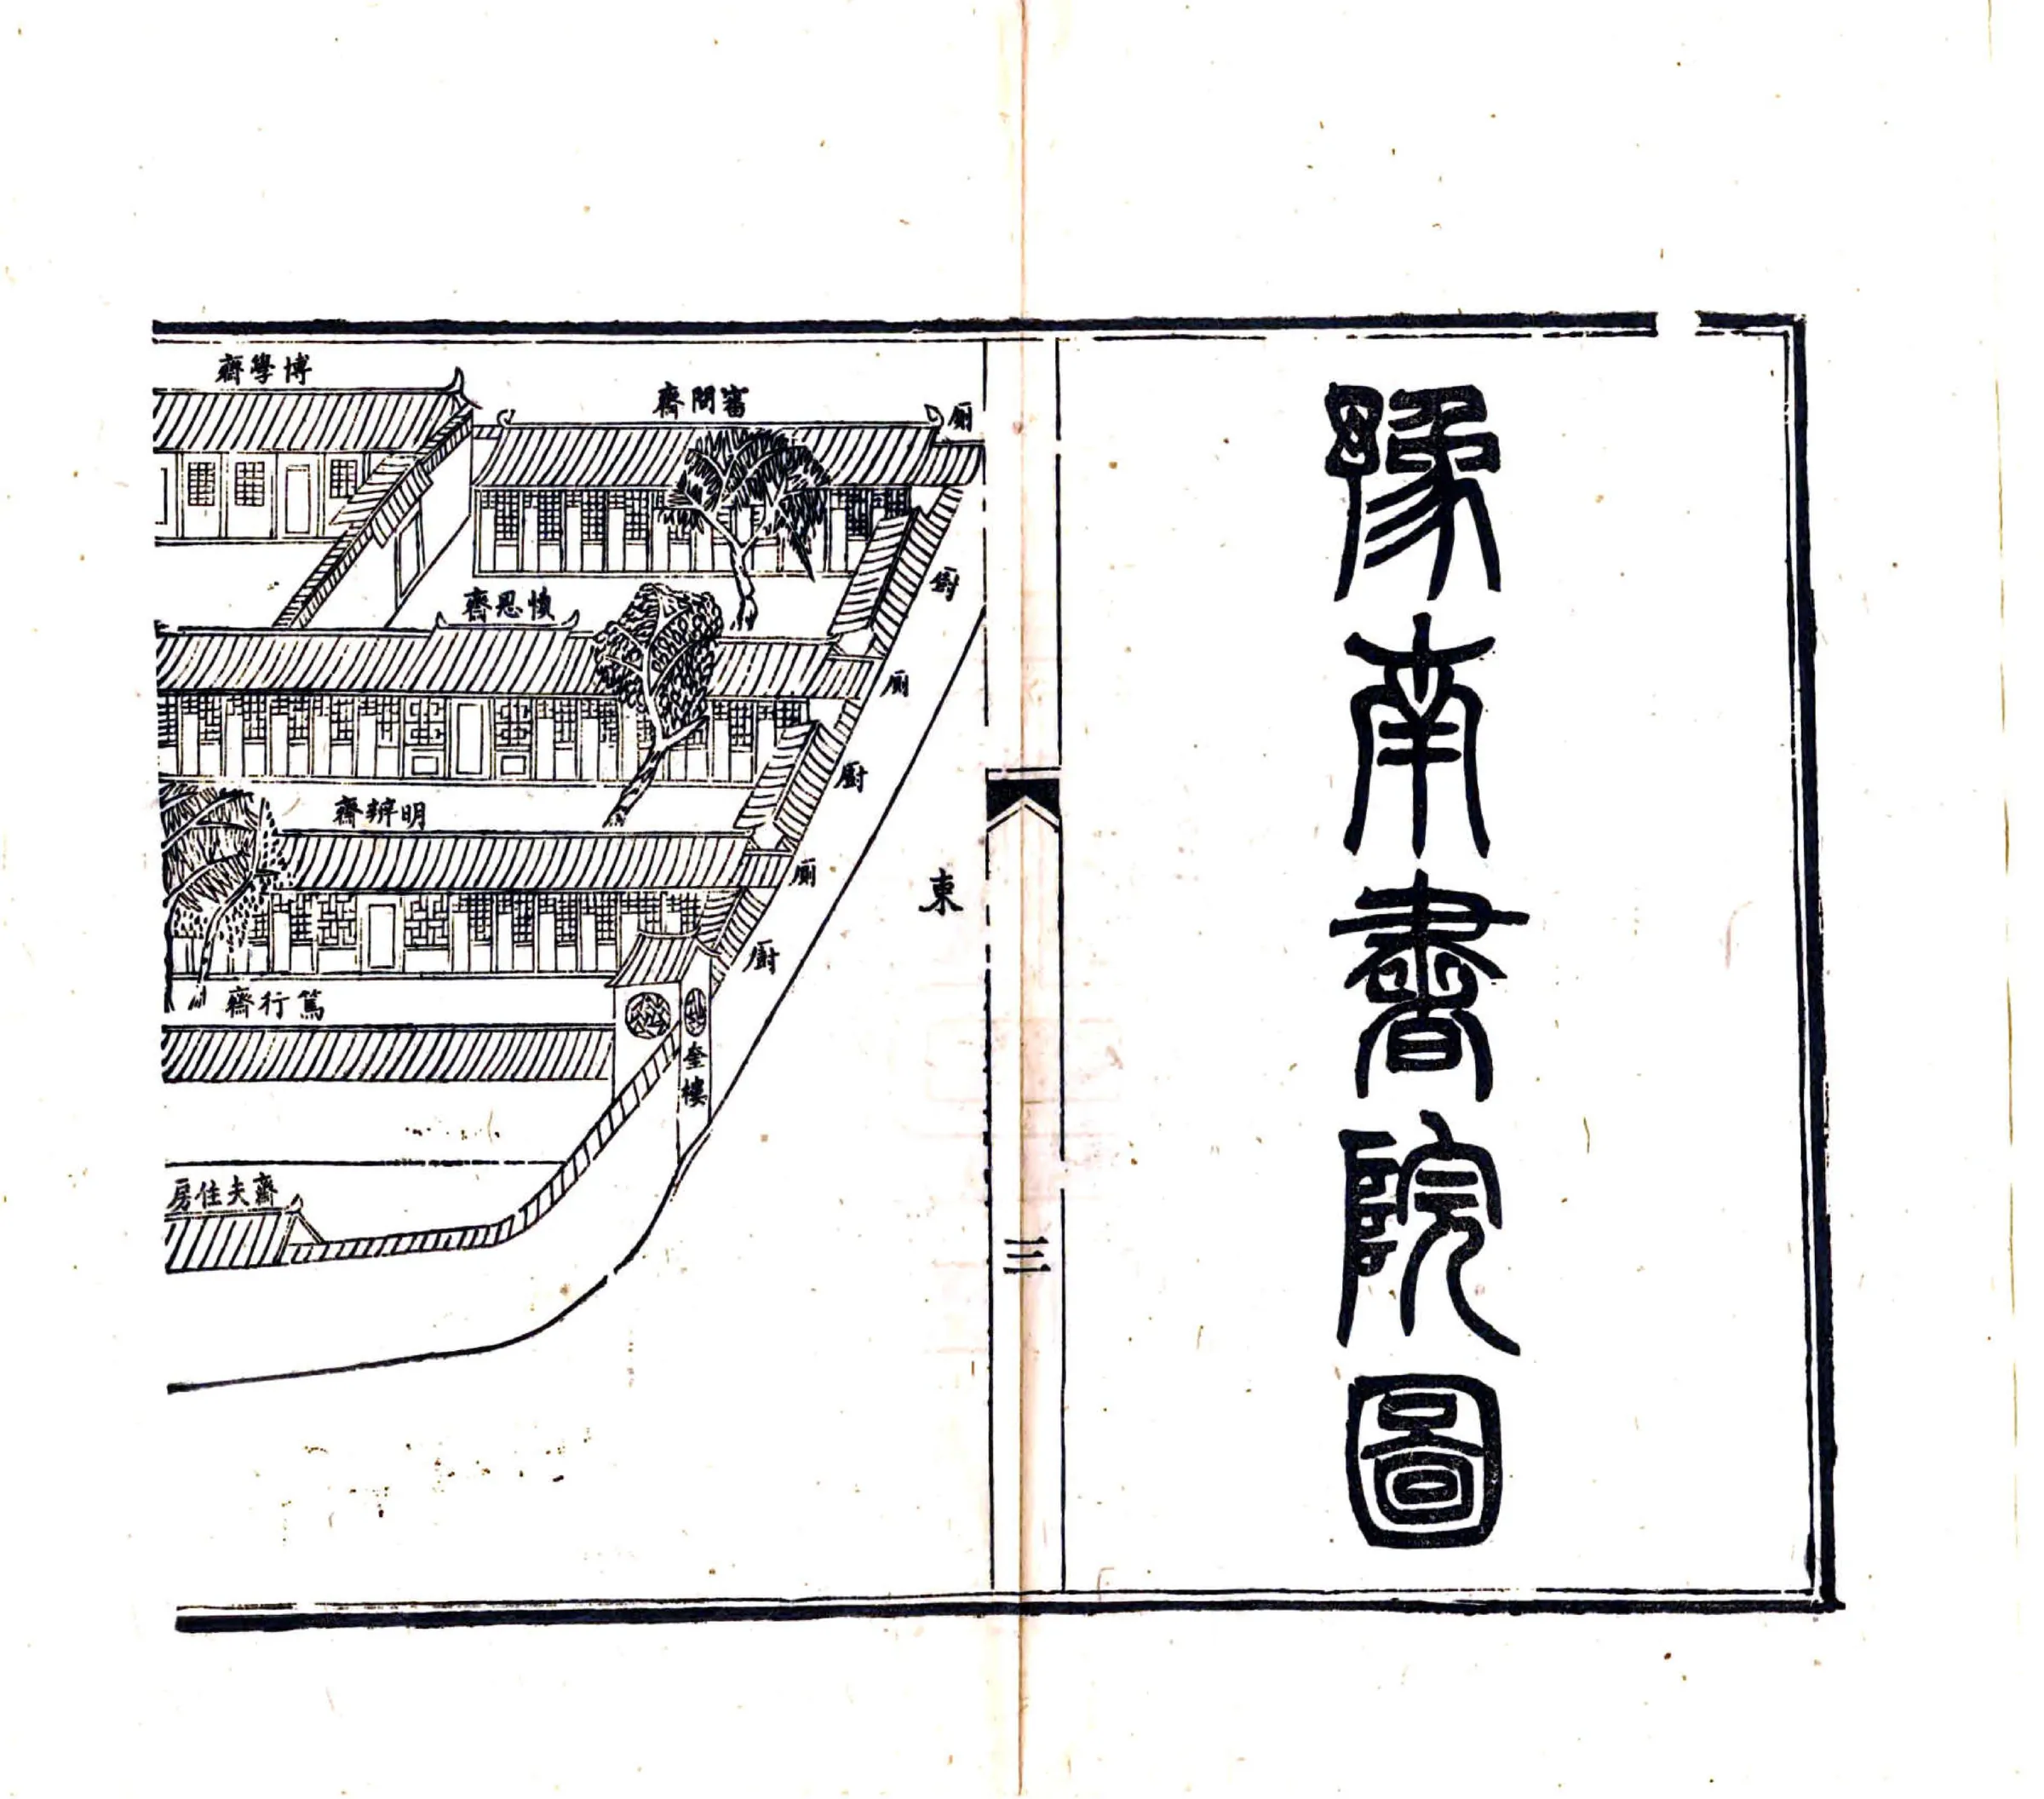 豫南書院圖
三
東
廁
審問齋
博學齋
廚
慎思齋
廁
廚
明辨齋
廁
廚
篤行齋
奎樓
齋夫住房